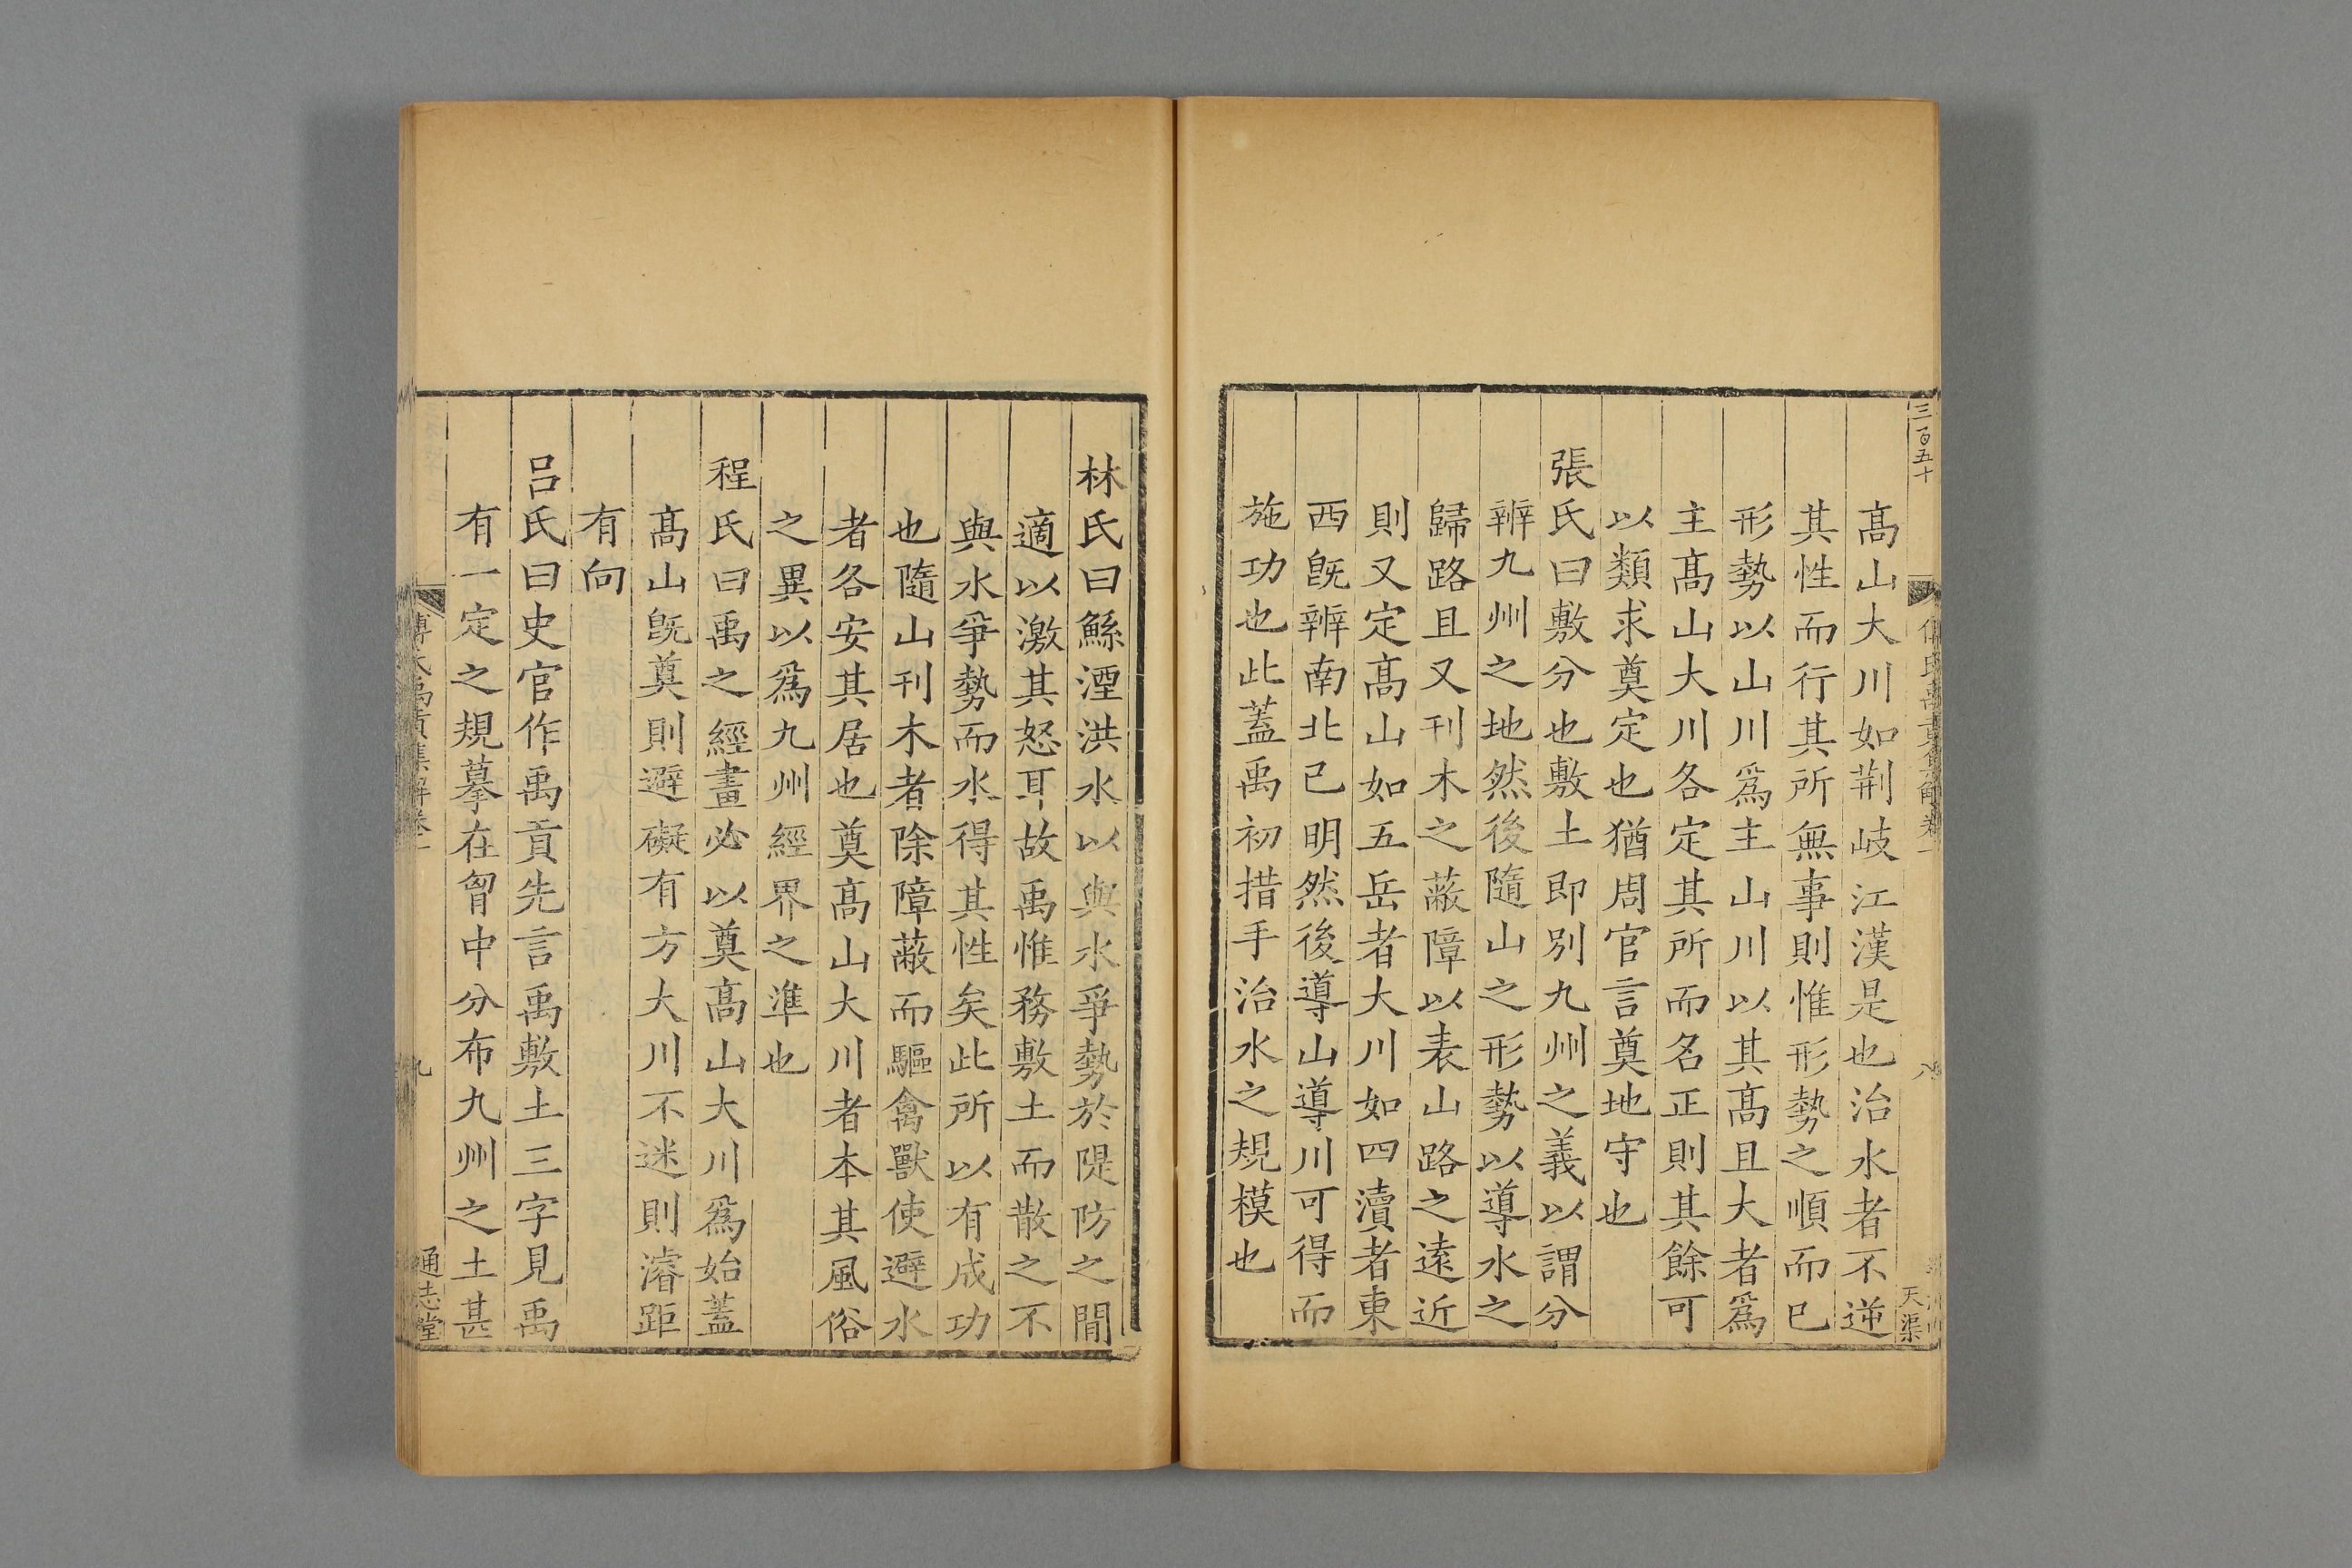 三百五十
傅氏禹貢集解卷一
八
天渠
髙山大川如荆岐江漢是也治水者不逆
其性而行其所無事則惟形勢之順而已
形勢以山川爲主山川以其髙且大者爲
主髙山大川各定其所而名正則其餘可
以類求奠定也猶周官言奠地守也
張氏曰敷分也敷土即別九州之義以謂分
辨九州之地然後隨山之形勢以導水之
歸路且又刊木之蔽障以表山路之遠近
則又定髙山如五岳者大川如四瀆者東
西旣辨南北已明然後導山導川可得而
施功也此蓋禹初措手治水之規模也
林氏曰鯀湮洪水以與水爭勢於隄防之閒
適以激其怒耳故禹惟務敷土而散之不
與水爭勢而水得其性矣此所以有成功
也隨山刊木者除障蔽而驅禽獸使避水
者各安其居也奠髙山大川者本其風俗
之異以爲九州經界之準也
程氏曰禹之經畫必以奠髙山大川爲始蓋
髙山旣奠則避礙有方大川不迷則濬距
有向
吕氏曰史官作禹貢先言禹敷土三字見禹
有一定之規摹在胷中分布九州之土甚
傅氏禹貢集解卷一
九
通志堂